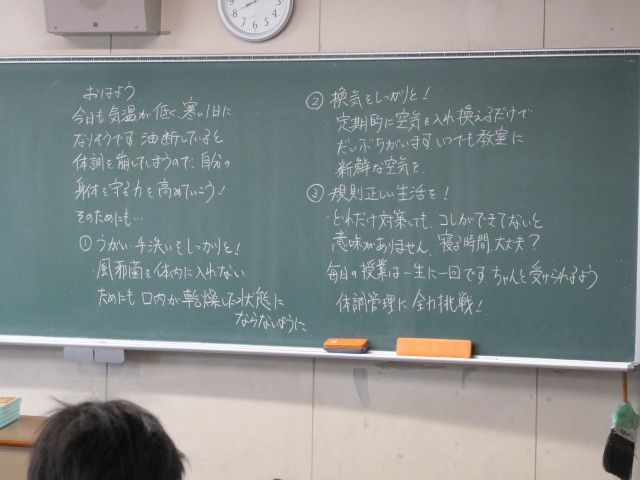 おはよう
今日も気温が低く、寒い1日に
なりそうです。油断していると
体調を崩してしまうので、自分の
身体を守る力を高めていこう!
そのためにも…
① うがい 手洗いをしっかりと!
・風邪菌を体内に入れない
ためにも 口内が乾燥した状態に
ならないように
② 換気をしっかりと!
・定期的に空気を入れ換えるだけで
だいぶちがいます。いつでも教室に
新鮮な空気を。
③ 規則正しい生活を!
・どれだけ対策しても、コレができてないと
意味がありません。寝る時間、大丈夫?
毎日の授業は一生に一回です。ちゃんと受けられるよう
体調管理に全力挑戦!